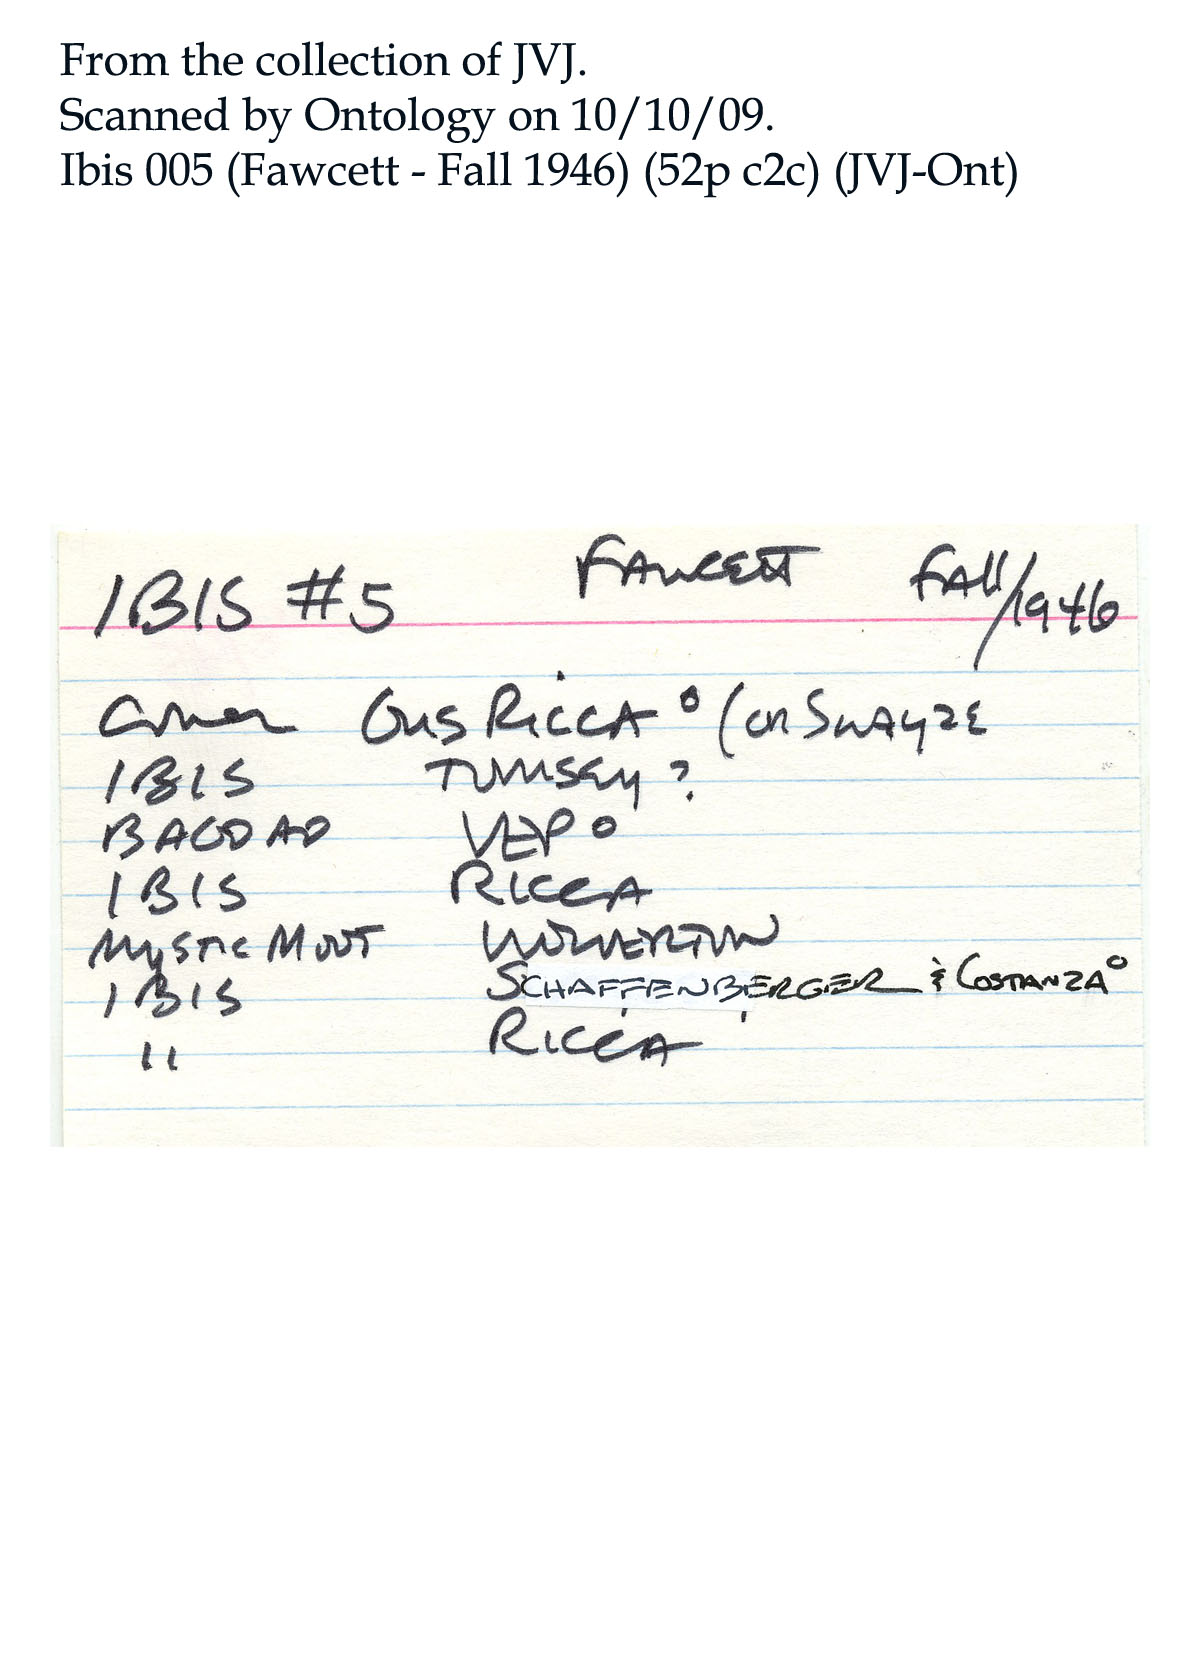 From the collection of JVJ.
Scanned by Ontology on 10/10/09.
Ibis 005 (Fawcett - Fall 1946) (52p c2c) (JVJ-Ont)
IBIS #5 FAWCETT FALL/1946
Cover Gus RICCA ° (or SWAYZE
IBIS TUMSEY ?
BAGDAD °
IBIS RICCA
MYSTIC MOOT WOLVERTON
IBIS SCHAFFENBERGER & COSTANZA °
" RICCA